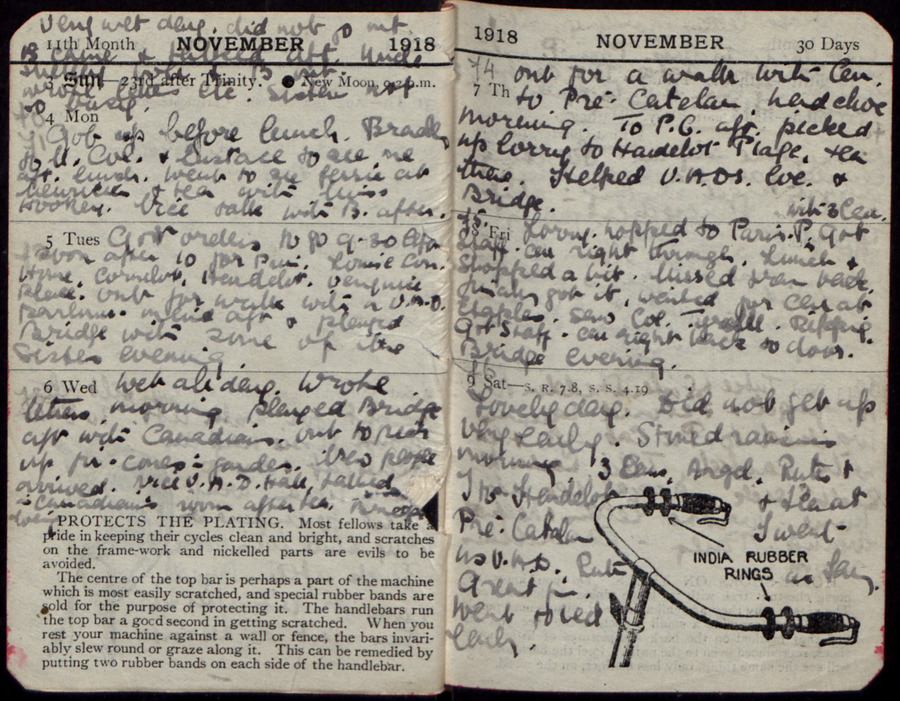 Very wet day, did not go out
11th Month NOVEMBER 1918
Sun—23rd after Trinity. ● New Moon, 9.2 p.m.
wrote letters etc. Sister not
so busy.
4 Mon
Got up before lunch. Bradley
to H. Col. & Eustace to see me
aft. lunch. Went to see
& tea with Miss
Hockey. Nice talk with B. after.
5 Tues Got orders to go 9-30
soon after 10 for
Home. Hardelot.
place. out for walk with a V.A.D.
aft & played
Bridge with some of the
Sisters evening
6 Wed Wet all day. Wrote
letters morning played Bridge
aft with Canadians. out to pick
up fir-cones in garden. two people
arrived. Nice V.A.D. Hall, talked
in Canadians room after tea.
PROTECTS THE PLATING. Most fellows take a
pride in keeping their cycles clean and bright, and scratches
on the frame-work and nickelled parts are evils to be
avoided.
The centre of the top bar is perhaps a part of the machine
which is most easily scratched, and special rubber bands are
sold for the purpose of protecting it. The handlebars run
the top bar a good second in getting scratched. When you
rest your machine against a wall or fence, the bars invari-
ably slew round or graze along it. This can be remedied by
putting two rubber bands on each side of the handlebar.
1918 NOVEMBER 30 Days
74 out for a walk with Can.
7 Th to Pré-Catelan, headache
morning. To P.G. aft. picked
up lorry to Hardelot Plage. tea
there. Helped V.A.Ds. eve. &
Bridge.
with 3 Can.
75 8 Fri Lorry hopped to Paris-P. Got
Staff car right through. Lunch &
Shopped a bit. Missed tram back,
got it, waited for car at
Etaples. Saw Col. Ripping
Got Staff-car right back to door.
Bridge evening.
76
9 Sat—S. R. 7.8, S. S. 4.19
Lovely day. Did not get up
very early. Stoned raisins
morning. 3 Cans, Angel, Rute &
I to Hardelot & tea at
Pré-Catelan I went
as V.A.D. Rute as
Great fun.
Went to bed
early.
INDIA RUBBER
RINGS